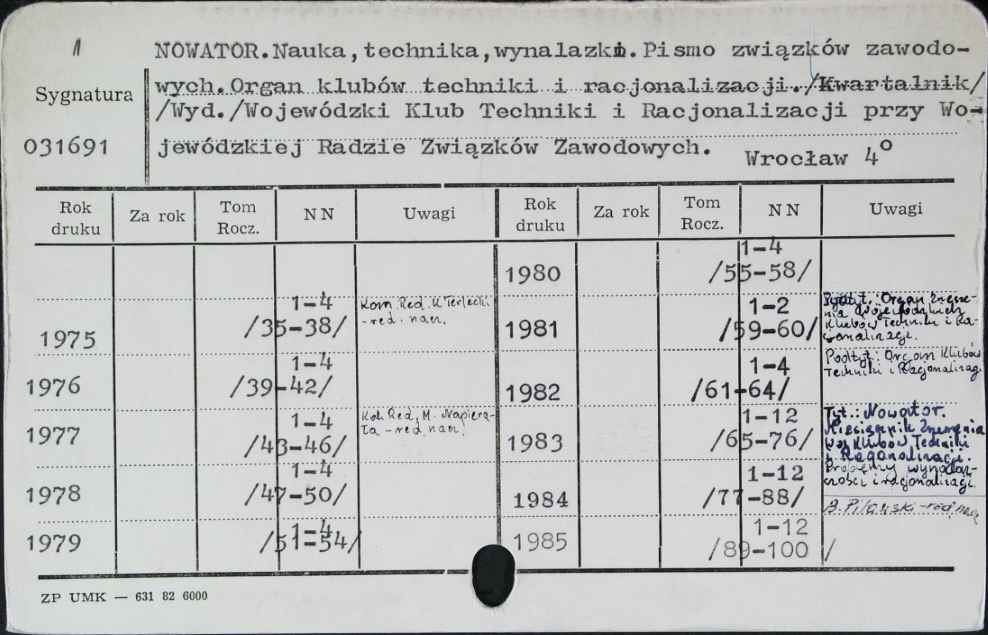 NOWATOR.Nauka,technika,wynalazki.Pismo związków zawodo-
wych.Organ klubów techniki i racjonalizacji./Kwartalnik/
/Wyd./Wojewódzki Klub Techniki i Racjonalizacji przy Wo-
jewódzkiej Radzie Związków Zawodowych. Wrocław 4°
Sygnatura
031691
Rok druku Za rok Tom Rocz. NN Uwagi Rok druku Za rok Tom Rocz. NN Uwagi
1975 1-4 /35-38/ Kom. Red. K. Terlecki - red. nacz.
1976 1-4 /39-42/
1977 1-4 /43-46/ Kol. Red. M. Napiera-ta - red. nacz.
1978 1-4 /47-50/
1979 1-4 /51-54/
1980 1-4 /55-58/
1981 1-2 /59-60/ Podt.: Organ Zrzesze-nia Wojewódzkich Klubów Techniki i Ra-cjonalizacji.
1982 1-4 /61-64/ Podtyt.: Organ Klubów Techniki i Racjonalizacji
1983 1-12 /65-76/ Tyt.: Nowator. Miesięcznik Zrzeszenia Woj. Klubów Techniki i Racjonalizacji. Problemy wynalaz-czości i racjonalizacji.
1984 1-12 /77-88/ - red. nacz.
1985 1-12 /89-100 /
ZP UMK — 631 82 6000